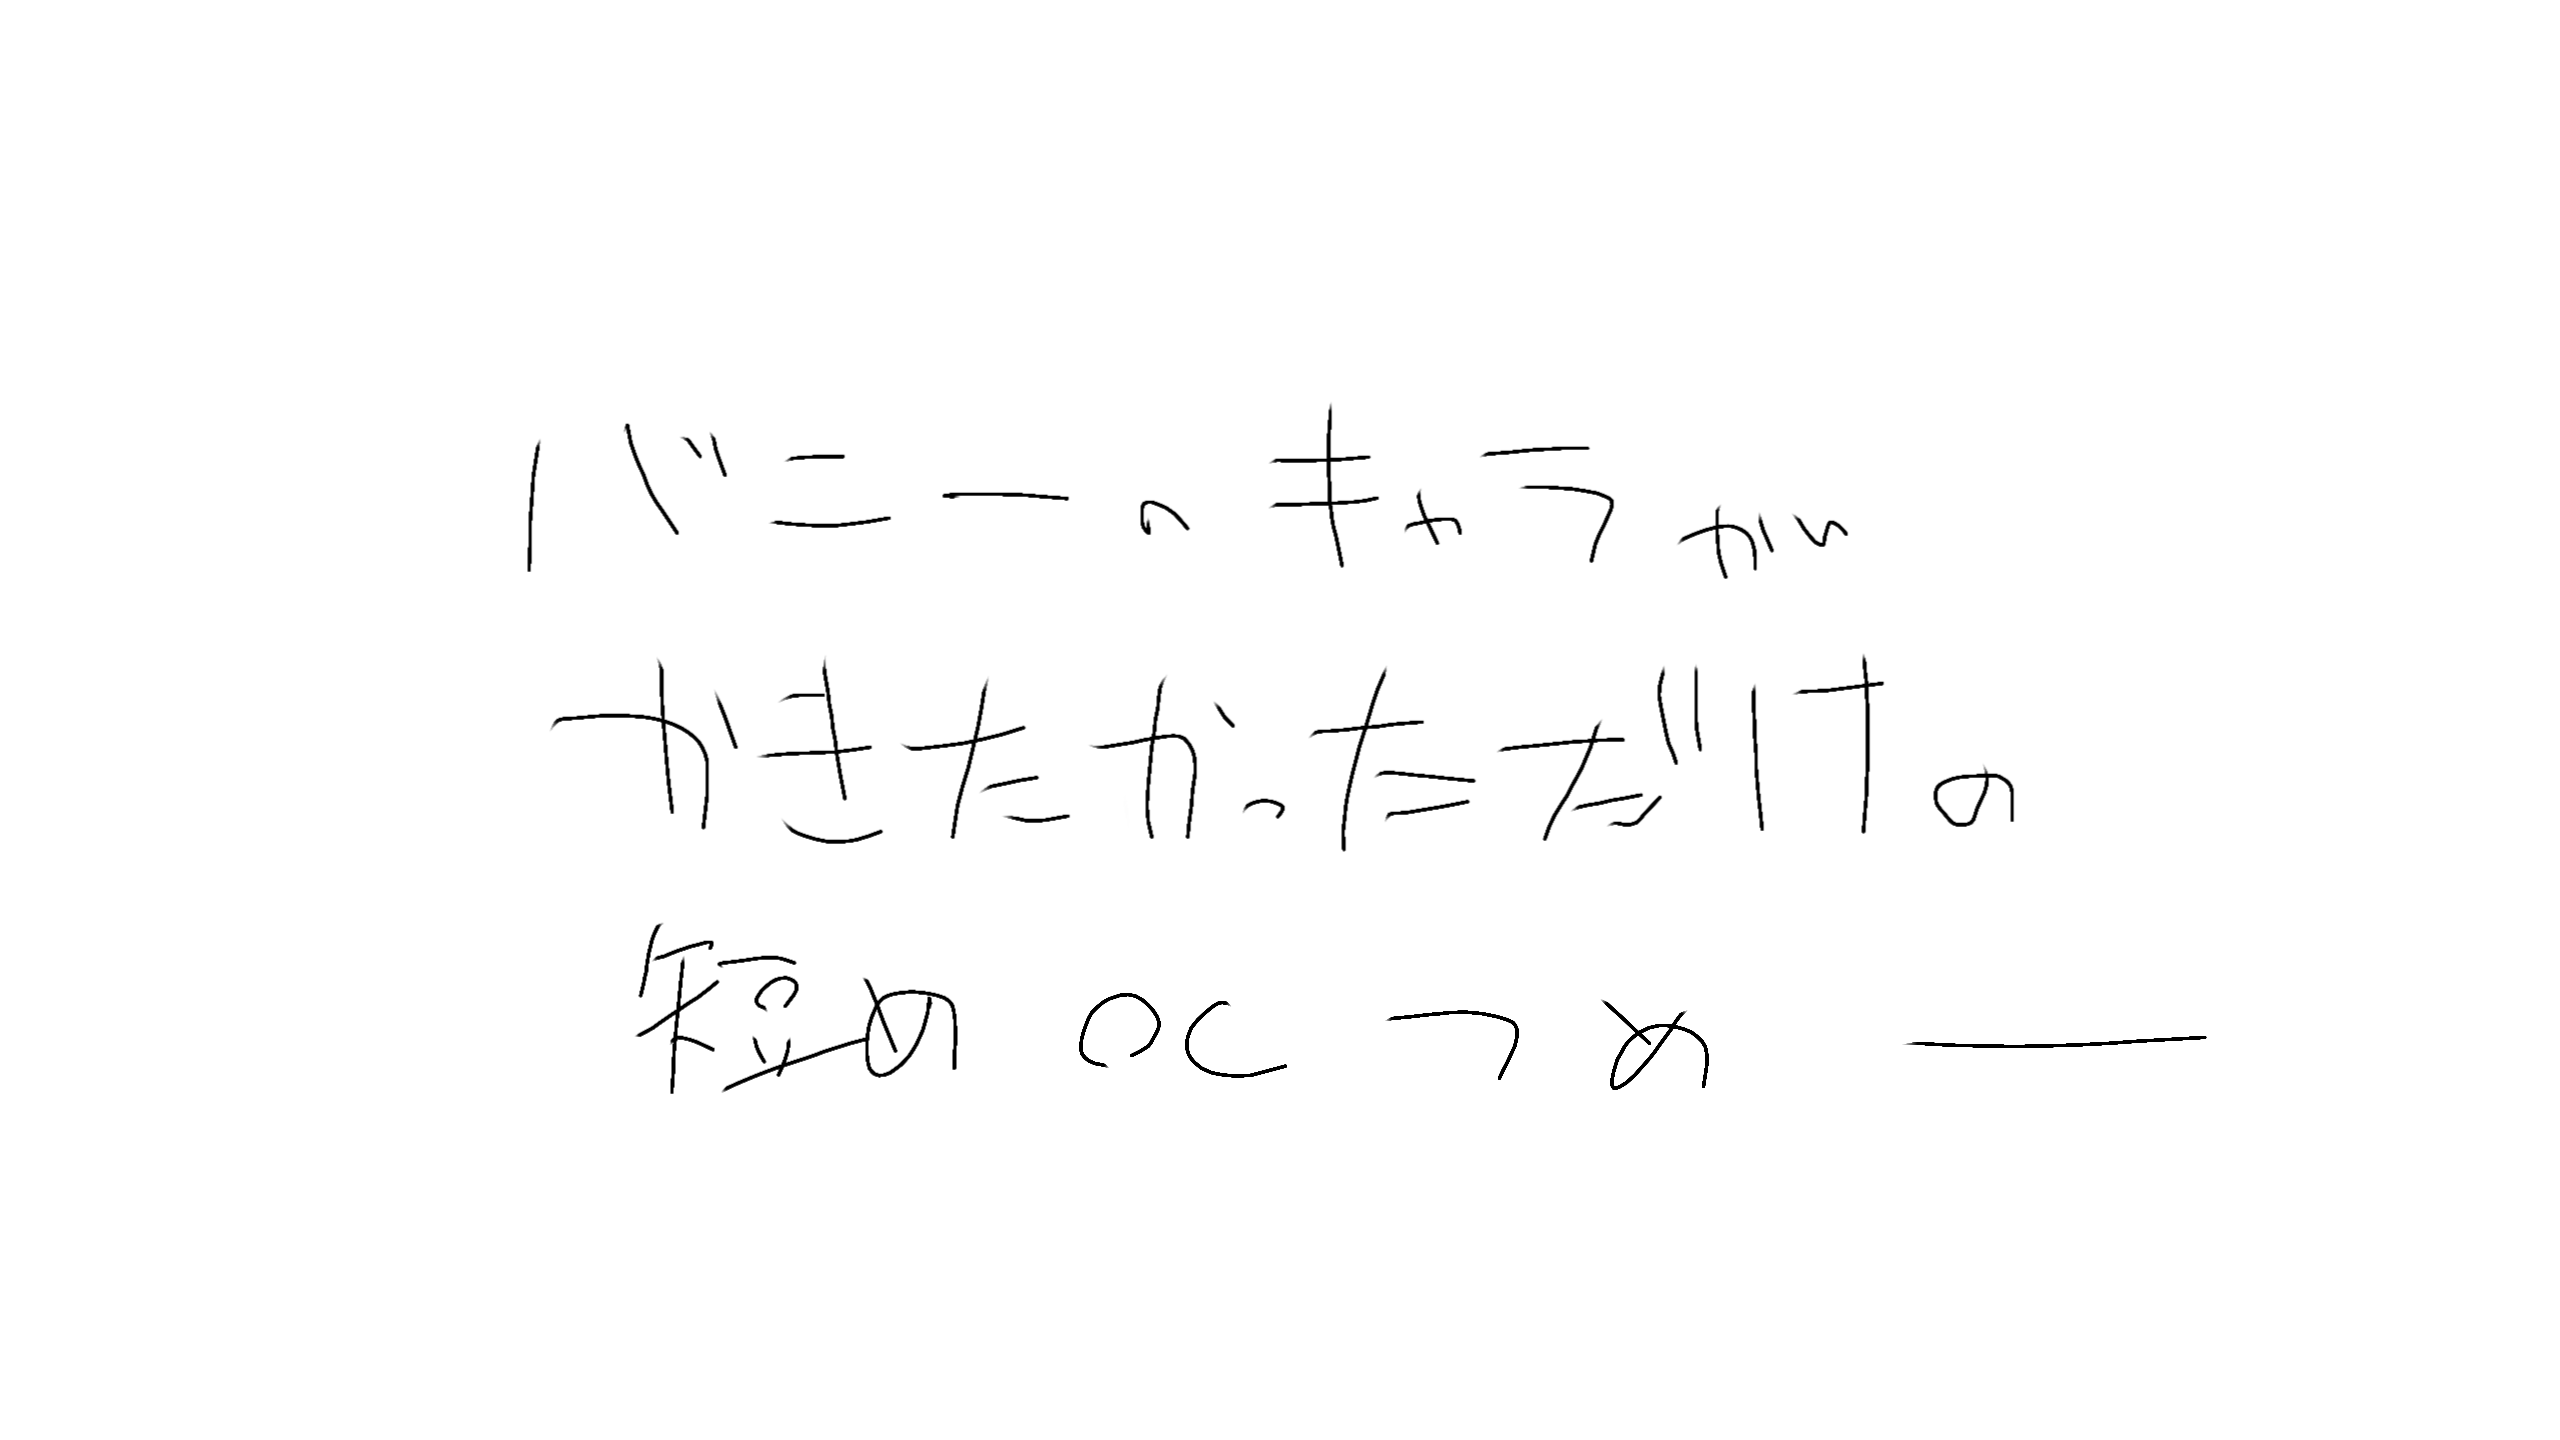 バニーのキャラがい
かきたかっただけの
短めOCつめー